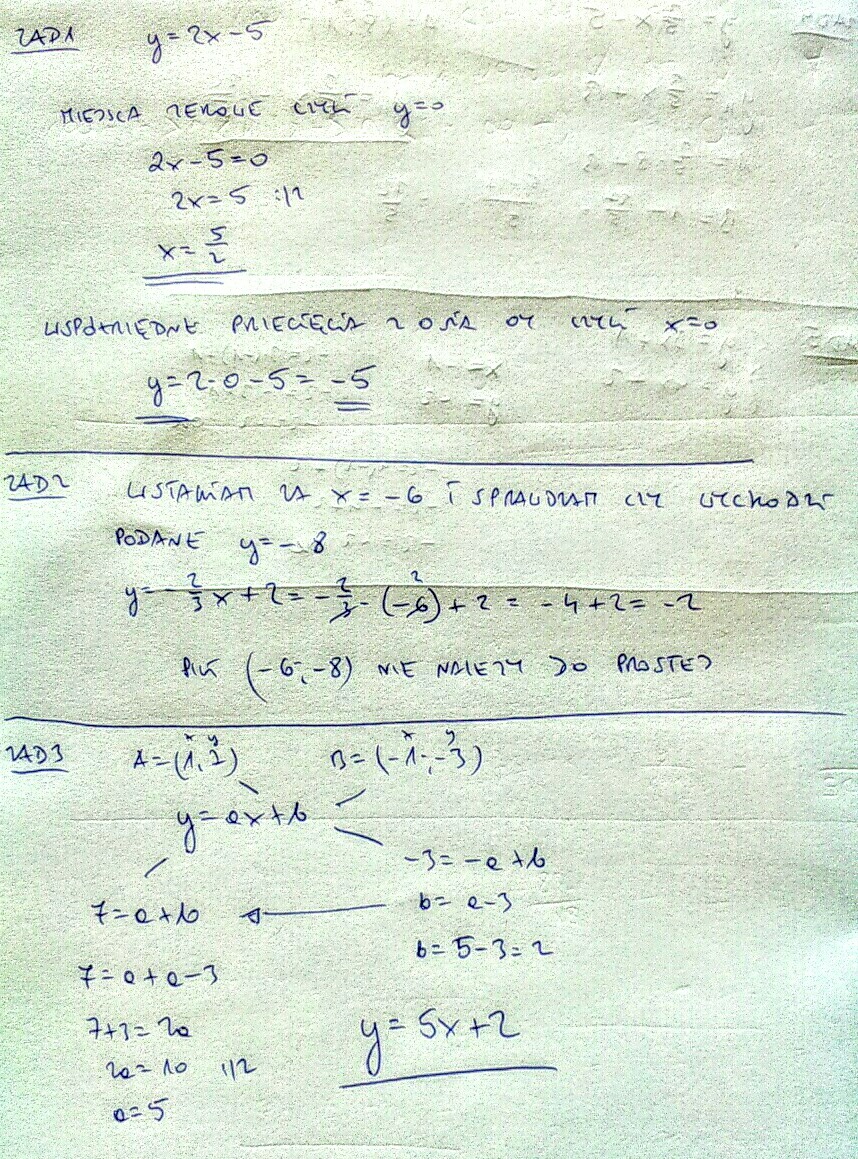 ZAD1 y=2x-5
MIEJSCA ZEROWE CZYLI y=0
2x-5=0
2x=5 :/2
x=5/2
WSPÓŁRZĘDNE PRZECIĘCIA Z OSIĄ OY CZYLI x=0
y=2·0-5=-5
ZAD2 WSTAWIAM ZA x=-6 I SPRAWDZAM CZY WYCHODZI
PODANE y=-8
y=-2/3x+2=-2/3·(-6)+2=-4+2=-2
(-6;-8) NIE NALEŻY DO PROSTEJ
ZAD3 A=(1,7) B=(-1;-3)
x y x y
y=ax+b
-3=-a+b
7=a+b b=a-3
b=5-3=2
7=a+a-3
7+3=2a y=5x+2
2a=10 :/2
a=5